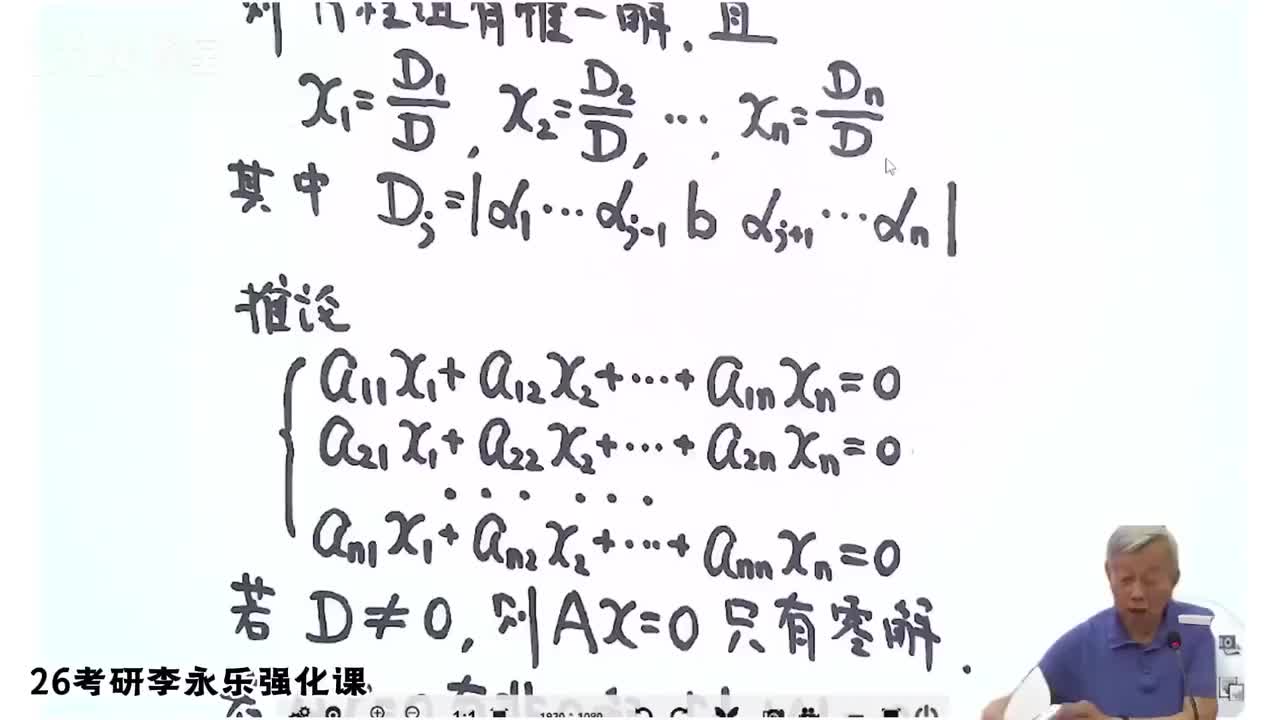 则方程组有惟一解.且
x₁=D₁/D, x₂=D₂/D, ⋯, xₙ=Dₙ/D
其中 Dⱼ=|α₁⋯αⱼ₋₁ b αⱼ₊₁⋯αₙ|
推论
a₁₁x₁+a₁₂x₂+⋯+a₁ₙxₙ=0
a₂₁x₁+a₂₂x₂+⋯+a₂ₙxₙ=0
⋯ ⋯
aₙ₁x₁+aₙ₂x₂+⋯+aₙₙxₙ=0
若 D≠0,则Ax=0只有零解.
26考研李永乐强化课
1:1 1920:1080